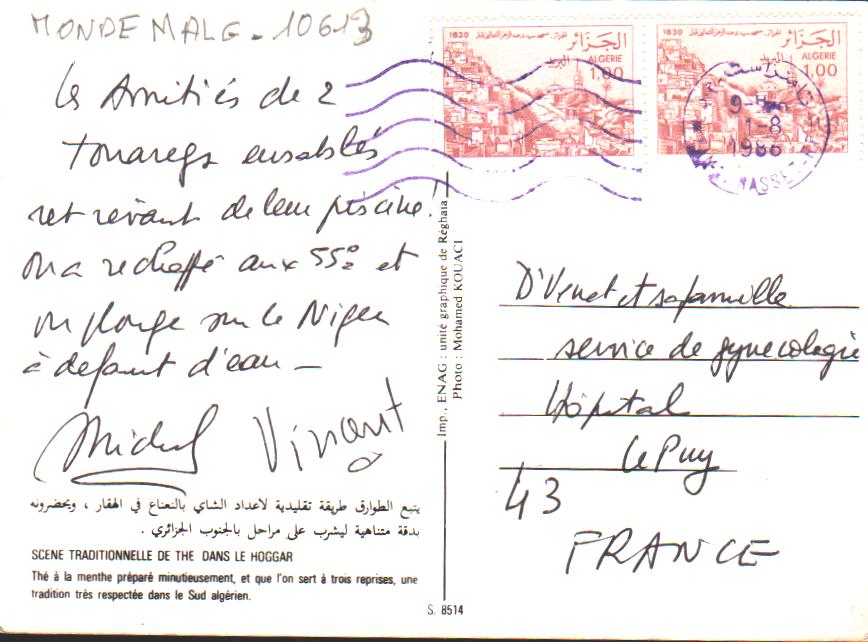 MONDE MALG - 10613
Les Amitiés de 2
Touaregs ensablés
et rêvant de leur piscine!
On a rechappé aux 55° et
on plonge sur le Niger
à défaut d'eau —
Michel Vinant
يتبع الطوارق طريقة تقليدية لاعداد الشاي بالنعناع في الهقار ، ويحضرونه
بدقة متناهية ليشرب على مراحل بالجنوب الجزائري .
SCENE TRADITIONNELLE DE THE DANS LE HOGGAR
Thé à la menthe préparé minutieusement, et que l'on sert à trois reprises, une
tradition très respectée dans le Sud algérien.
S. 8514
Imp., ENAG : unité graphique de Réghaïa
Photo : Mohamed KOUACI
1830
الجزائر
البريد
ALGERIE
1,00
1830
الجزائر
ALGERIE
1,00
تامنراست
1-8
1986
TASSE
Dr Venet et sa famille
service de gynecologie
Hôpital
Le Puy
43
FRANCE